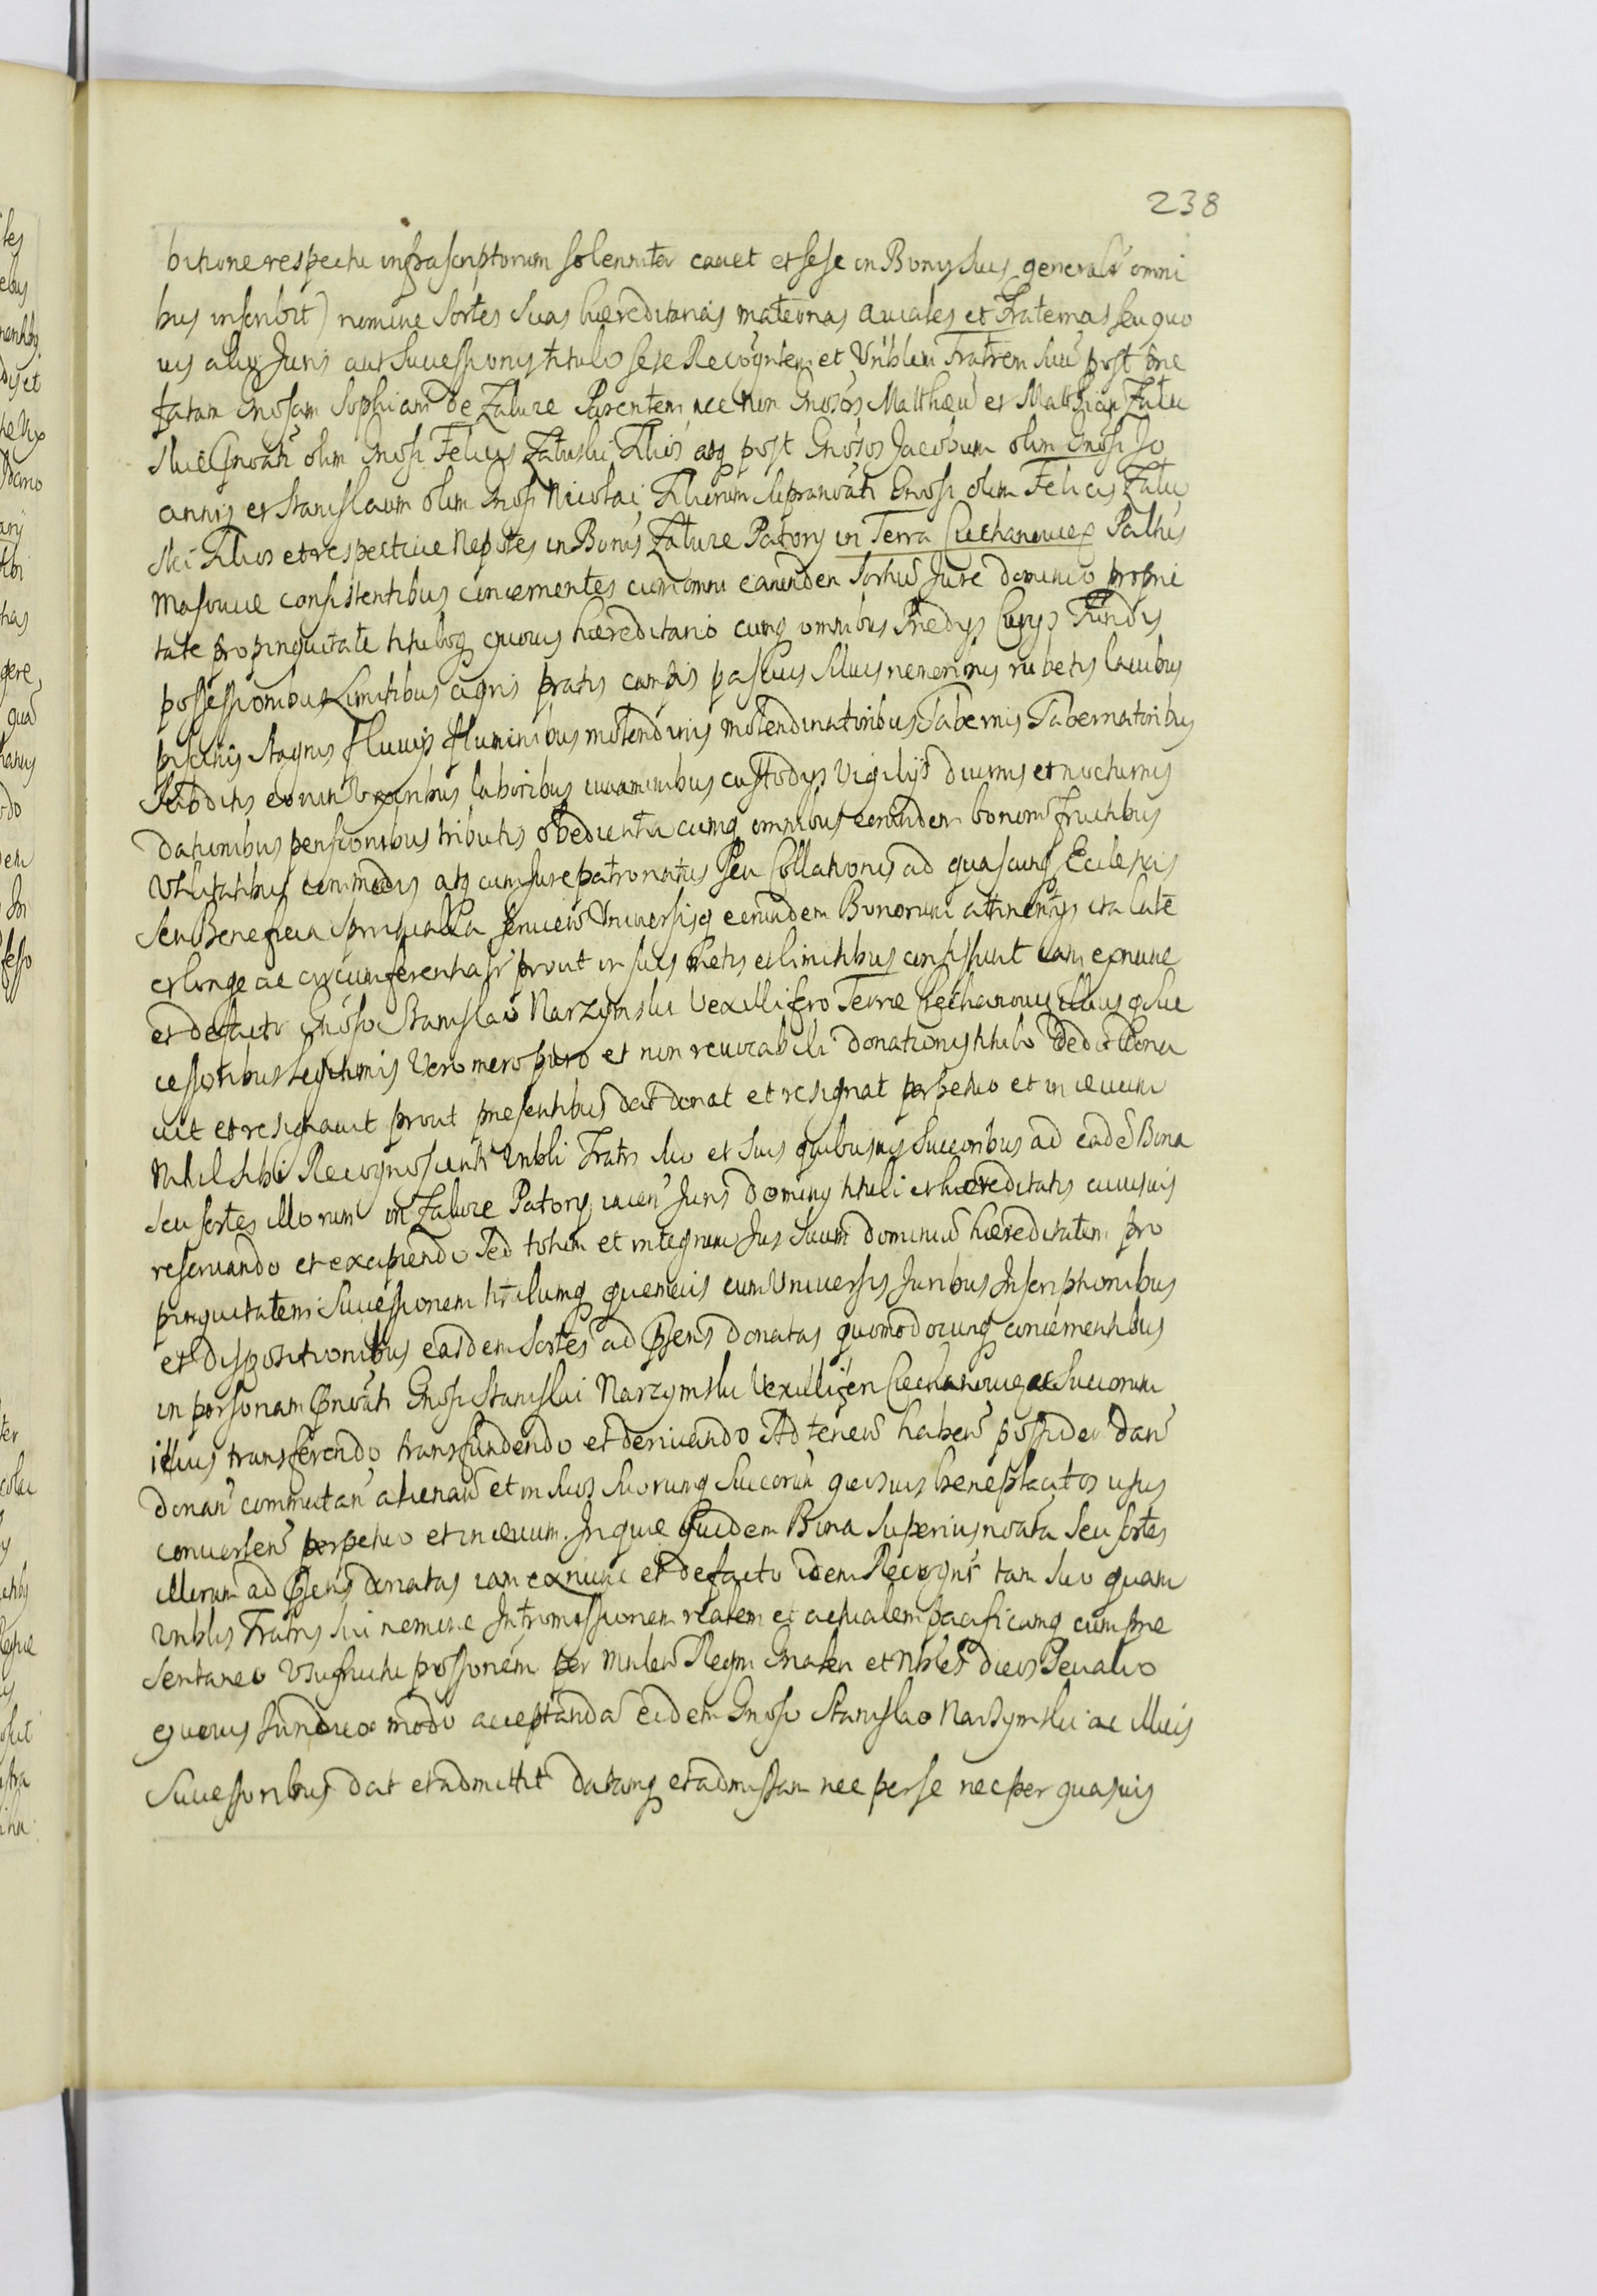 238
bitione respectu infrascriptorum solenniter cavet et sese in Bonis suis generalr omni
bus inscribit) nomine Sortes Suas hæreditarias maternas aviales et Fraternas seu quo
vis alio Juris aut Successionis titulo sese Recogntem et Vnblem Fratrem suũ post præ
fatam Gnosam Sophiam de Zaluze Parentem nec non Gnosos Matthæũ et Mathiam Zalu
skie Gnoan olim Gnosi Felicis Zaluski Filios atq post Gnosos Jacobum olim Gnosi Jo
annis et Stanislaum olim Gnosi Nicolai Filiorum supranoati Gnosi olim Felicis Zalu
ski Filios et respective Nepotes in Bonis Zaluze Patory in Terra Ciechanouien Palñs
Masouiæ consistentibus concernentes cum omni earunden Sortiũ Jure dominio proprie
tate propinquitate tituloq quouis hæreditario cumq omnibus Prædijs Curijs Fundis
possessionibus Limitibus agris pratis campis pascuis siluis nemeribus rubetis lacubus
piscinis stagnis fluuijs fluminibus molendinis molendinatoribus Tabernis Tabernatoribus
Subditis eorum Vxoribus laboribus iuuaminibus custodijs Vigilijs diurnis et nocturnis
dationibus pensionibus tributis obedientia cumq omnibus eorundem bonorũ fructibus
Vtilitatibus commodis atq cum Jure patronatus seu Collationis ad quascunq Ecclesias
seu Beneficia spiritualia Vniversisq eorundem Bonorum attinentijs ita late
et longe ac circumferentialr prout in suis metis et limitibus consistunt iam ex nunc
et defacto Gnoso Stanislao Narzymski Vexillifero Terræ Ciechanouien illius q Suc
cessoribus Legitimis Vero mero puro et non reuocabili donationis titulo dedit Dona
uit et resignauit prout præsentibus dat donat et resignat perpetuo et in æuum
Nihil sibi Recognoscenti Vnbli Fratri suo et suis quibusuis Succoribus ad eadẽ Bona
seu sortes illorum in Zaluze Patory iacen Juris dominij tituli et hæreditatis cuiusuis
reseruando et excipiendo Sed totum et integrum Jus Suum dominiũ hæreditatem pro
pinquitatem Successionem titulumq quemuis cum Vniuersis Juribus Inscriptionibus
et dispositionibus easdem Sortes ad præsens donatas quomodocunq concernentibus
in personam prænoati Gnosi Stanislai Narzymski Vexilliferi Ciechanouien ac Succorum
illius transferendo transfundendo et deriuando Ad tenenũ habenũ possidenũ danũ
donanũ commutanũ alienanũ et in suos suorumq Succorũ quosuis beneplacitos usus
conuertenũ perpetuo et in æuum. In quæ quidem Bona superius noata seu sortes
illorum ad præsens donatas iam ex nunc et defacto idem Recogns tam suo quam
Vnblis Fratris sui nomine Intromissionem realem et actualem pacificamq cum præ
sentaneo Vsufructu possionem per Mnlem Regni Gnalem et Nbles duos seu alio
quouis Juridico modo acceptandã eidem Gnoso Stanislao Narzymski ac illius
Successoribus dat et admittit datamq et admissam nec per se nec per quasuis